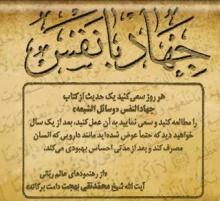 جهاد با نفس
هر روز سعی کنید یک حدیث از کتاب
جهاد النفس «وسائل الشیعه»
را مطالعه کنید و سعی نمایید به آن عمل کنید، بعد از یک سال
خواهید دید که حتماً عوض شده اید مانند دارویی که انسان
مصرف کند و بعد از مدتی احساس بهبودی می کند.
«از رهنمودهای عالم ربانی
آیت الله شیخ محمدتقی بهجت دامت برکاته»